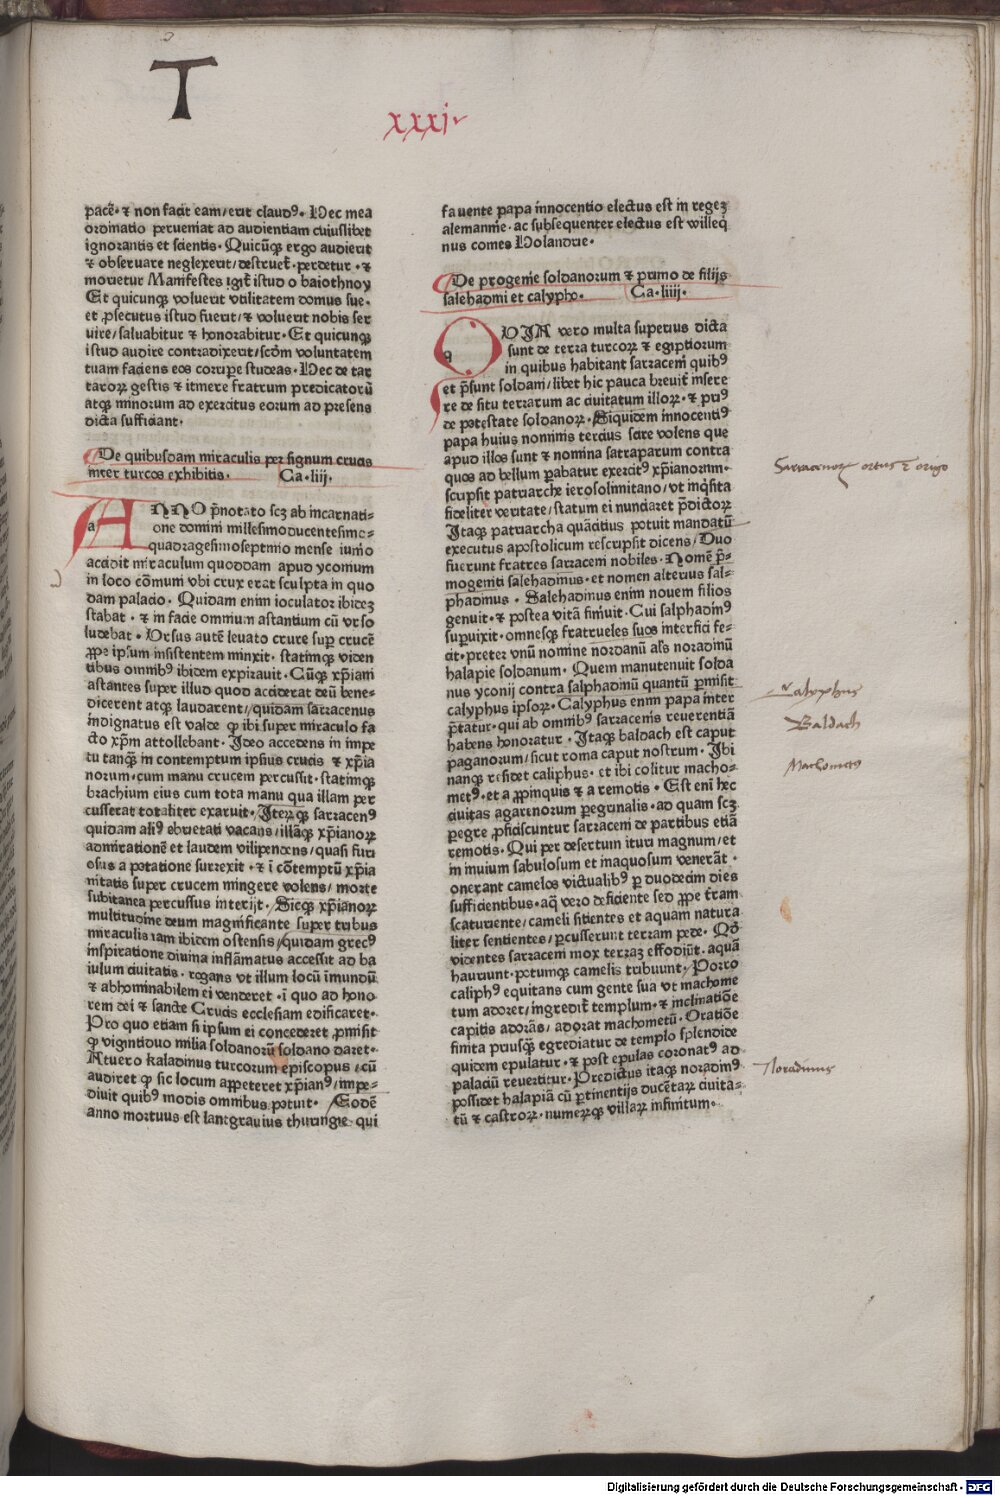 T
xxxj
pacē· ⁊ non facit eam/erit claudꝰ· Hec mea
ordinatio perueniat ad audientiam cuiuslibet
ignorantis et scientis· Quicūqꝫ ergo audierit
⁊ obseruare neglexerit/destruet᷒·perdetur·⁊
morietur Manifestes igit᷒ istud o baiothnoy
Et quicunqꝫ voluerit vtilitatem domus sue·
et ꝓsecutus istud fuerit/⁊ voluerit nobis ser
uire/saluabitur ⁊ honorabitur·Et quicunqꝫ
istud audire contradixerit/scḋm voluntatem
tuam faciens eos corripe studeas·Hec de tar
tarorꝝ gestis ⁊ itinere fratrum predicatorū
atqꝫ minorum ad exercitus eorum ad presens
dicta sufficiant·
De quibusdam miraculis per signum crucis
inter turcos exhibitis· Ca·liij·
a
ANNO p̄notato scꝫ ab incarnati-
one domini millesimoducentesimo-
quadragesimoseptimo mense iunio
accidit miraculum quoddam apud yconium
in loco cōmuni vbi crux erat sculpta in quo
dam palacio· Quidam enim ioculator ibideꝫ
stabat· ⁊ in facie omnium astantium cū vrso
ludebat· Vrsus autē leuato crure sup crucē
ꝓpe ipsum insistentem minxit·statimqꝫ viden
tibus omnibꝰ ibidem expirauit· Cūqꝫ xp̄iani
astantes super illud quod acciderat deū bene-
dicerent atqꝫ laudarent/quidam sarracenus
indignatus est valde ꝙ ibi super miraculo fa
cto xp̄m attollebant·Ideo accedens in impe
tu tanqꝫ in contemptum ipsius crucis ⁊ xp̄ia
norum·cum manu crucem percussit·statimqꝫ
brachium eius cum tota manu qua illam per
cusserat totaliter exaruit·Iterꝝqꝫ sarracenꝰ
quidam aliꝰ ebrietati vacans/illāqꝫ xp̄ianorꝝ
admirationē et laudem vilipendens/quasi furi
osus a potatione surrexit·⁊ ī cōtemptū xp̄ia
nitatis super crucem mingere volens/morte
subitanea percussus interijt·Sicqꝫ xp̄ianorꝝ
multitudine deum magnificante super tribus
miraculis iam ibidem ostensis/quidam grecꝰ
inspiratione diuina inflāmatus accessit ad ba
iulum ciuitatis·rogans vt illum locū īmundū
⁊ abhominabilem ei venderet·ī quo ad hono
rem dei ⁊ sancte Crucis ecclesiam edificaret·
Pro quo etiam si ipsum ei concederet ꝓmisit
ꝙ vigintiduo milia soldanorū soldano daret·
At vero kaladinus turcorum episcopus/cū
audiret ꝙ sic locum appeteret xp̄ianꝰ/impe-
diuit quibꝰ modis omnibus potuit· Eodē
anno mortuus est lantgrauius thuringie·qui
fauente papa innocentio electus est in regeꝫ
alemannie·ac subsequenter electus est willeq
nus comes Holandie·
De progenie soldanorum ⁊ primo de filijs
salehadini et calypho· Ca·liiij·
q
QVIA vero multa superius dicta
sunt de terra turcorꝝ ⁊ egiptiorum
in quibus habitant sarraceni quibꝰ
et p̄sunt soldani/libet hic pauca breuit᷒ insere
re de situ terrarum ac ciuitatum illorꝝ·⁊ priꝰ
de potestate soldanorꝝ·Siquidem innocentiꝰ
papa huius nominis tercius scire volens que
apud illos sunt ⁊ nomina satraparum contra
quos ad bellum ꝑabatur exercitꝰ xp̄ianorum·
scripsit patriarche ierosolimitano/vt inq̇sita
fideliter veritate/statum ei nunciaret p̄dictorꝝ
Itaqꝫ patriarcha quācitius potuit mandatū
executus apostolicum rescripsit dicens/Duo
fuerunt fratres sarraceni nobiles·Nomē p̄-
mogeniti salehadinus·et nomen alterius sal-
phadinus· Salehadinus enim nouem filios
genuit·⁊ postea vitā finiuit·Cui salphadinꝰ
supuixit·omnesqꝫ fratrueles suos interfici fe-
cit·preter vnū nomine nordanū al's noradinū
halapie soldanum· Quem manutenuit solda
nus yconij contra salphadinū quantū ꝑmisit
calyphus ipsorꝝ·Calyphus enim papa inter
p̄tatur·qui ab omnibꝰ sarracenis reuerentiā
habens honoratur·Itaqꝫ baldach est caput
paganorum/sicut roma caput nostrum·Ibi
nanqꝫ residet caliphus·et ibi colitur macho-
metꝰ·et a ꝓpinquis ⁊ a remotis· Est eni hec
ciuitas agarenorum peregrinalis·ad quam scꝫ
peregre ꝓficiscuntur sarraceni de partibus etiā
remotis·Qui per desertum ituri magnum/et
in inuium sabulosum et inaquosum venerāt·
onerant camelos victualibꝰ ꝑ duodecim dies
sufficientibus·aq̄ vero deficiente sed ꝓpe t᷒ram
scaturiente/cameli sitientes et aquam natura
liter sentientes/ꝑcusserunt terram pede·Qḋ
videntes sarraceni mox terraꝫ effodiūt·aquā
hauriunt·potumqꝫ camelis tribuunt·Porro
caliphꝰ equitans cum gente sua vt machome
tum adoret/ingredit᷒ templum·⁊ inclinatiōe
capitis adorās/adorat machometū·Oratiōe
finita priusqꝫ egrediatur de templo splendide
quidem epulatur·⁊ post epulas coronatꝰ ad
palaciū reuertitur·Predictus itaqꝫ noradinꝰ
possidet halapiā cū ꝑtinentijs ducētarꝝ ciuita-
tū ⁊ castrorꝝ·numerꝝqꝫ villarꝝ infinitum·
Sarracenorꝝ ortus ⁊ origo
Calyphus
Baldach
Machometꝰ
Noradinus
Digitalisierung gefördert durch die Deutsche Forschungsgemeinschaft - DFG